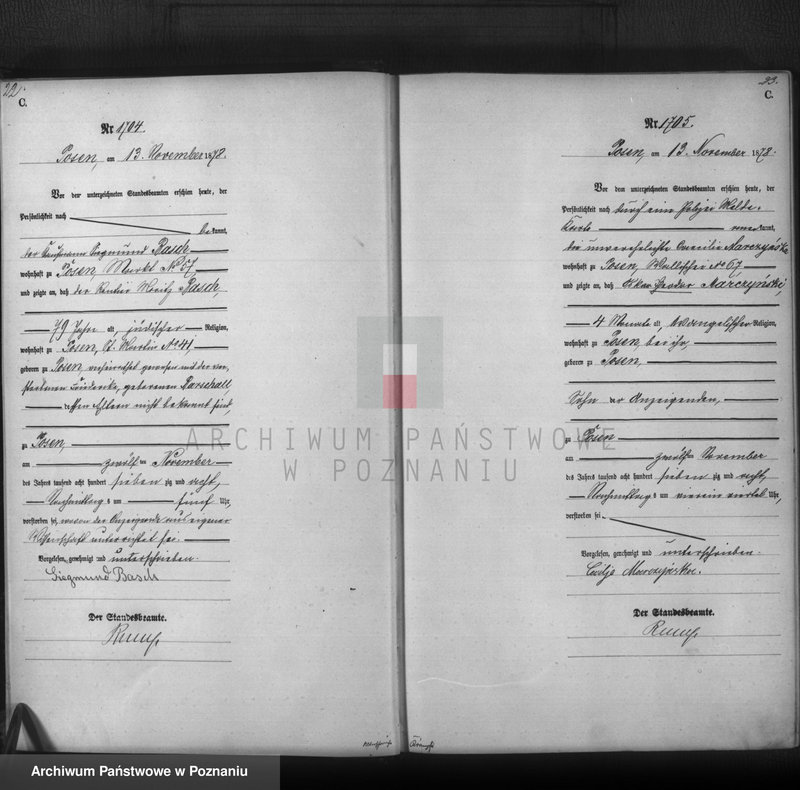 22.
C.
Nr 1704.
Posen, am 13. November 1878.
Vor dem unterzeichneten Standesbeamten erschien heute, der
Persönlichkeit nach
bekannt,
der Kaufmann Siegmund Basch
wohnhaft zu Posen Markt No 57
und zeigte an, daß der Rentier Moritz Basch,
79 Jahre alt, jüdischer Religion,
wohnhaft zu Posen, St. Martin No 41,
geboren zu Posen verheirathet gewesen mit der ver
storbenen Friederike, geborenen Barschall
dessen Eltern nicht bekannt sind,
zu Posen,
am zwölften November
des Jahres tausend acht hundert siebenzig und acht,
Nachmittags um fünf Uhr,
verstorben sei, wovon der Anzeigende aus eigener
Wissenschaft unterrichtet sei.
Vorgelesen, genehmigt und unterschrieben.
Siegmund Basch
Der Standesbeamte.
23.
C.
Nr 1705.
Posen, am 13. November 1878.
Vor dem unterzeichneten Standesbeamten erschien heute, der
Persönlichkeit nach durch eine Polizei Melde-
Karte anerkannt,
die unverehelichte Caecilie Marczyńska
wohnhaft zu Posen, Wallischei No 67
und zeigte an, daß Theodor Marczyński,
4 Monate alt, evangelischer Religion,
wohnhaft zu Posen, bei ihr,
geboren zu Posen,
Sohn der Anzeigenden,
zu Posen
am zwölften November
des Jahres tausend acht hundert siebenzig und acht,
Nachmittags um viertel Uhr,
verstorben sei
Vorgelesen, genehmigt und unterschrieben.
Der Standesbeamte.
ARCHIWUM PAŃSTWOWE
W POZNANIU
Archiwum Państwowe w Poznaniu